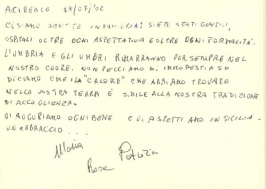 ACIREALE 28/07/'02
CI SIAMO SENTITE IMPORTANTI. SIETE STATI GENTILI,
OSPITALI OLTRE OGNI ASPETTATIVA E OLTRE OGNI FORMALITÀ.
L'UMBRIA E GLI UMBRI RIMARRANNO PER SEMPRE NEL
NOSTRO CUORE. NON PECCHIAMO DI IMMODESTIA SE
DICIAMO CHE IL "CALORE" CHE ABBIAMO TROVATO
NELLA VOSTRA TERRA È SIMILE ALLA NOSTRA TRADIZIONE
DI ACCOGLIENZA.
VI AUGURIAMO OGNI BENE E VI ASPETTIAMO IN SICILIA.
UN ABBRACCIO...
Maria
Rosa Patrizia